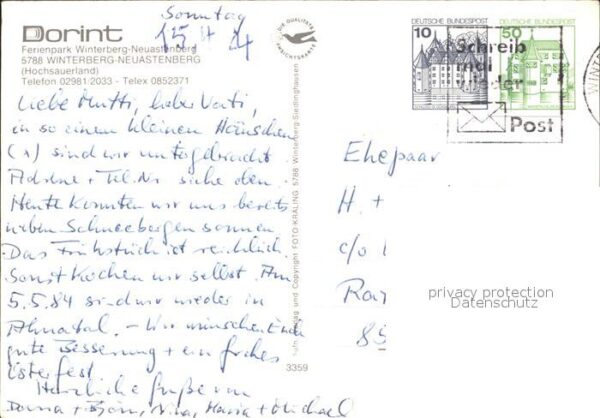 Sonntag
15 4 84
Dorint
Ferienpark Winterberg-Neuastenberg
5788 WINTERBERG-NEUASTENBERG
(Hochsauerland)
Telefon 02981-2033 - Telex 0852371
Liebe Mutti, lieber Vati,
in so einem kleinen Häuschen
(x) sind wir untergebracht
Adresse + Tel. Nr siehe oben.
Heute konnten wir uns bereits
neben Schneebergen sonnen.
Das Frühstück ist reichlich.
Sonst kochen wir selbst. Am
5.5.84 sind wir wieder in
Ahnatal. - Wir wünschen Euch
gute Besserung + ein frohes
Osterfest
Herzliche Grüße von
+ Björn, Maria + Michael
DIE QUALITÄTS
ANSICHTSKARTE
und Copyright FOTO-KRALING 5788 Winterberg-Siedlinghausen
3359
DEUTSCHE BUNDESPOST
10
DEUTSCHE BUNDESPOST
50
Schreib
mal
wieder
Post
WINT
Ehepaar
H. +
c/o
privacy protection
Datenschutz